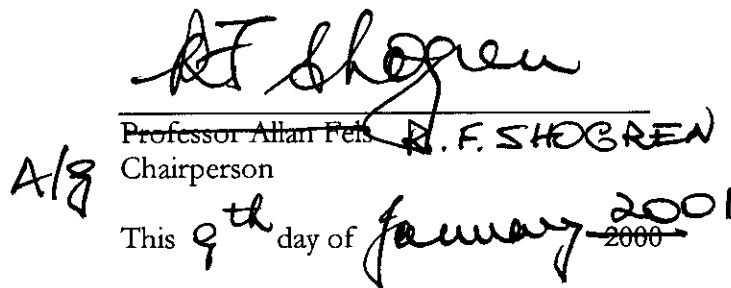 RF Shogren
Professor Allan Fels R.F. SHOGREN
A/g Chairperson
This 9th day of January 2000 2001